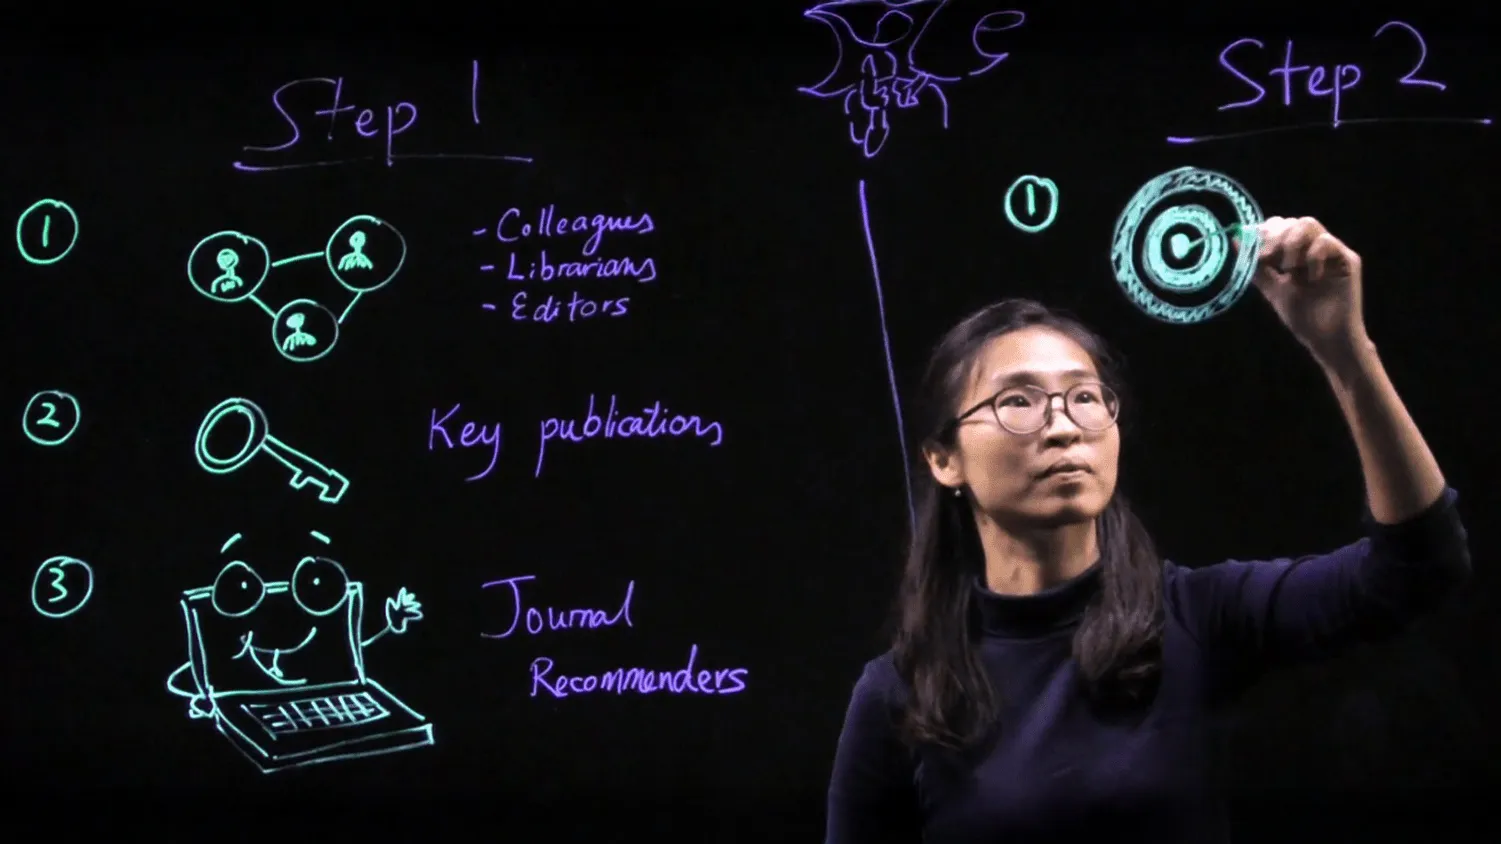 Step 1
1
- Colleagues
- Librarians
- Editors
2
Key publications
3
Journal
Recommenders
Step 2
1